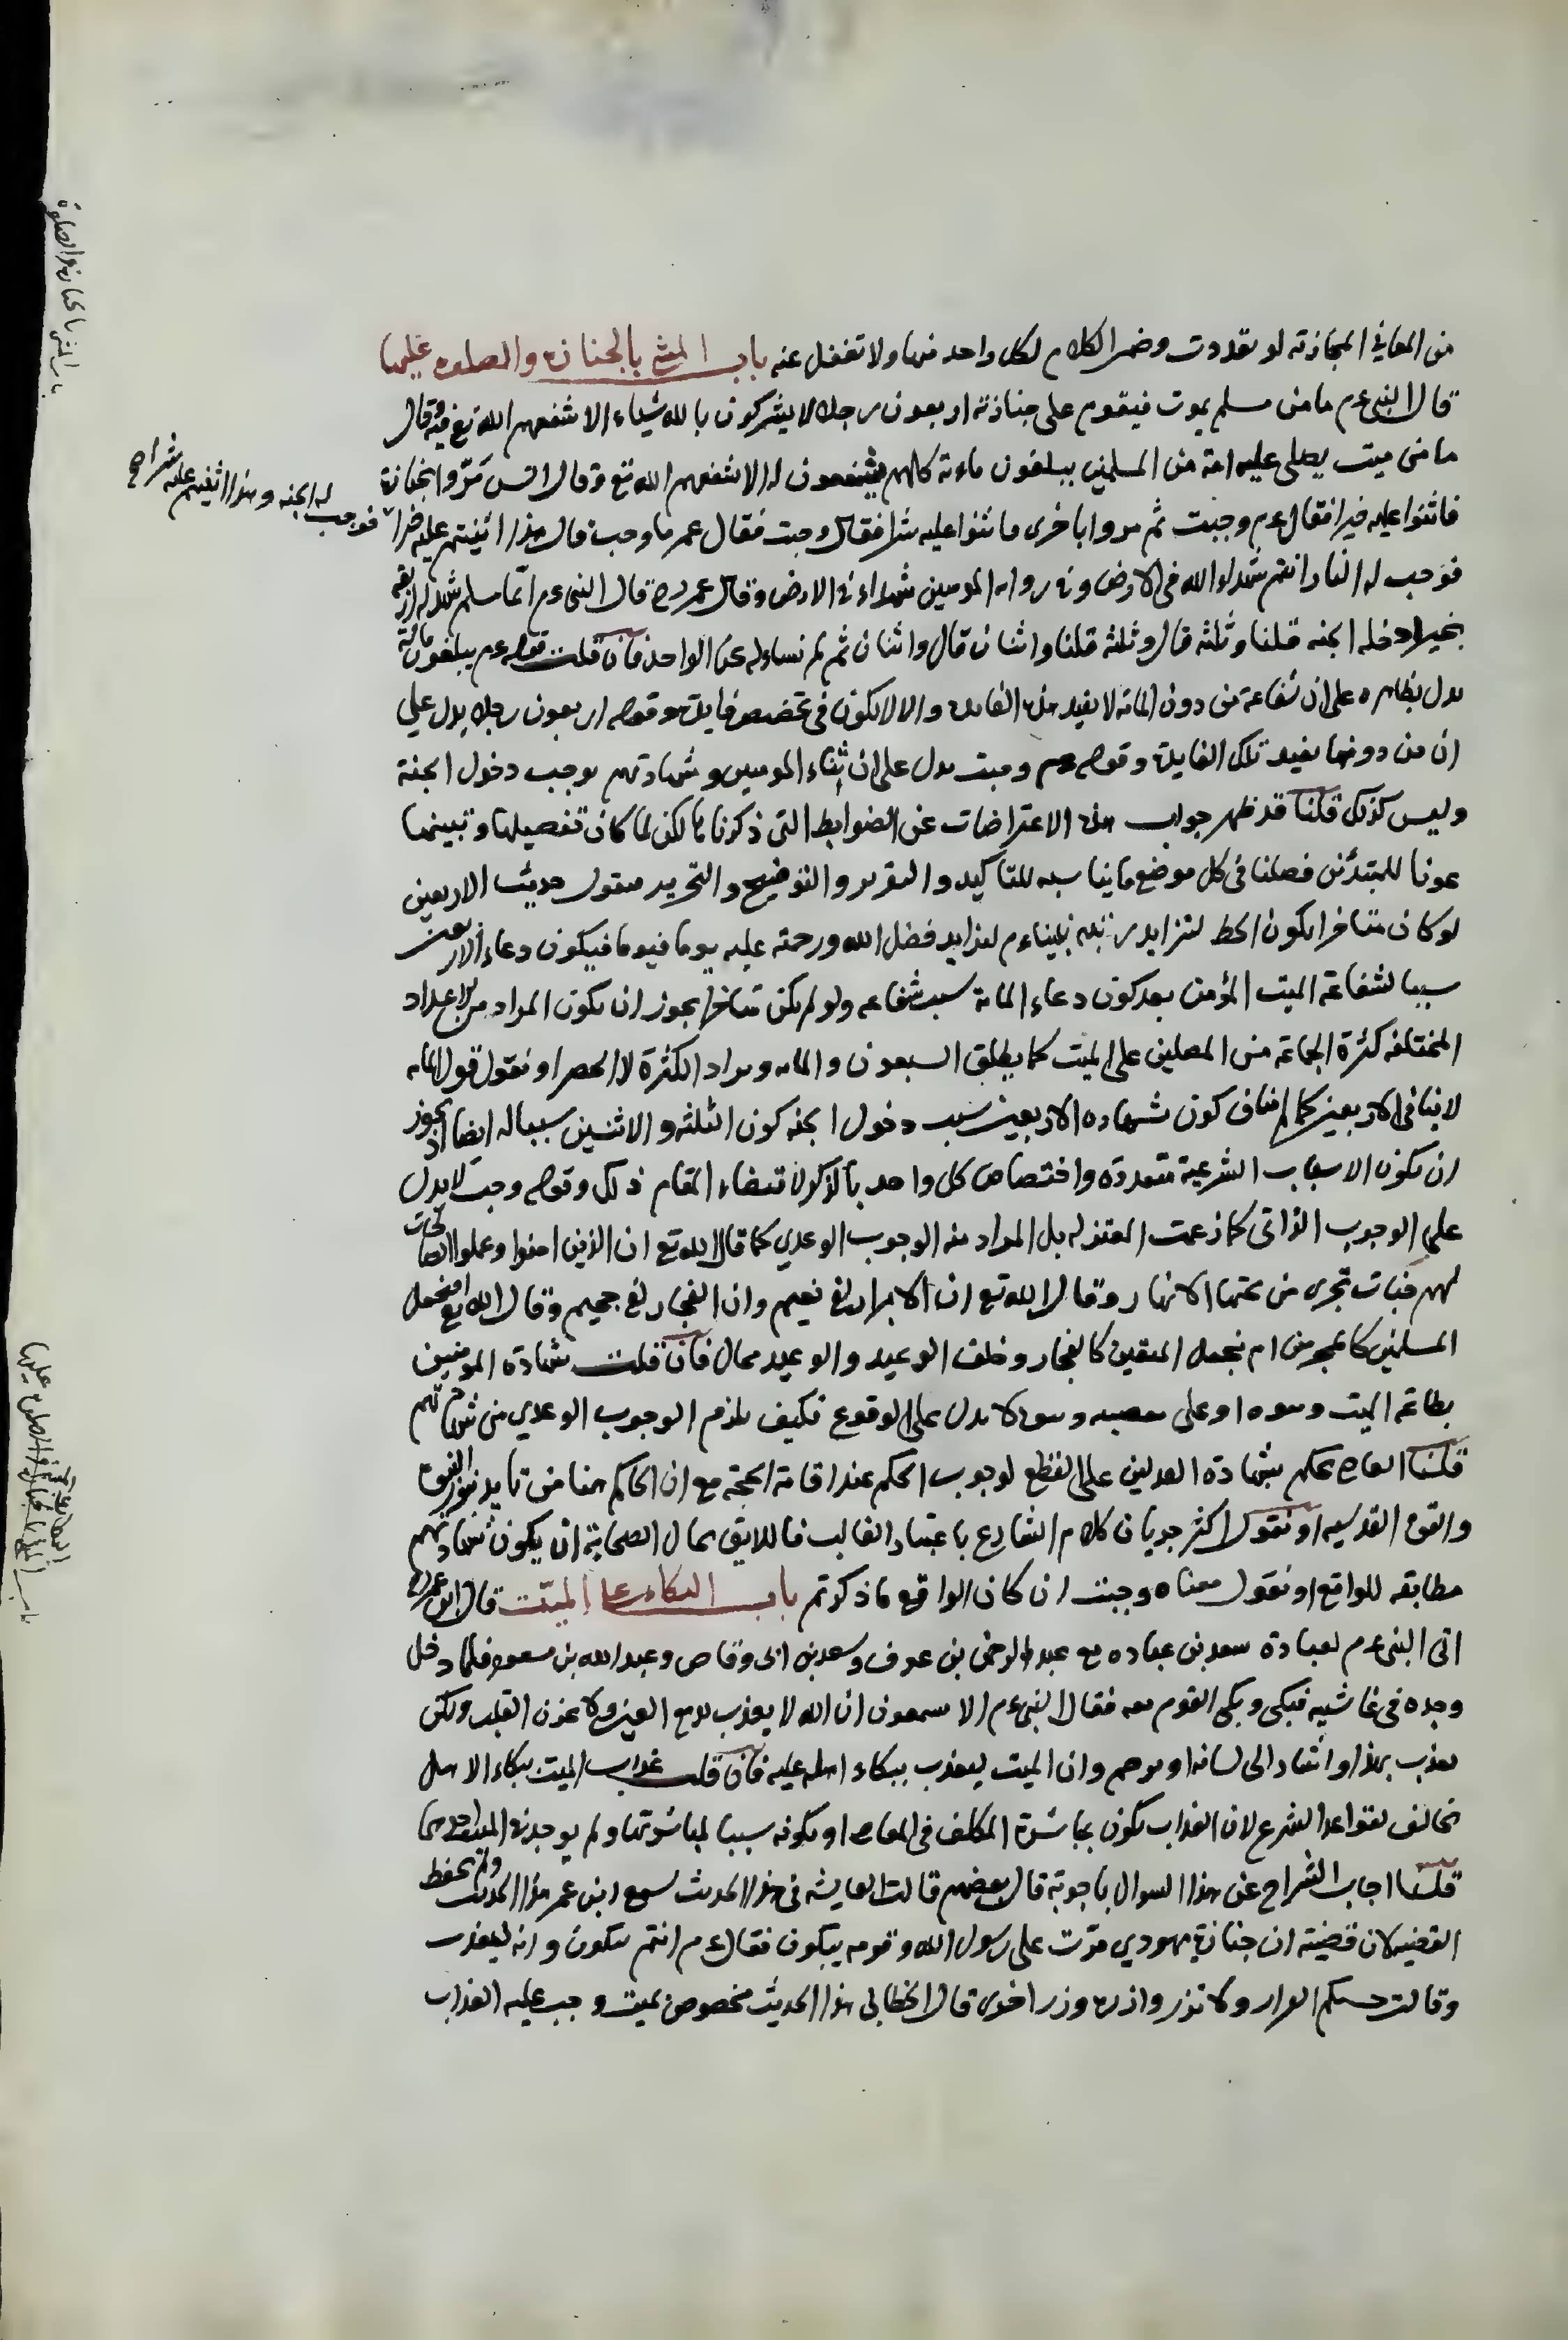 من المعاني المجازته لو تعددت وضمر الكلام لكل واحد منها ولا تغفل عنه باب المشي بالجنازه والصلوه عليها
قال النبي عم ما من مسلم يموت فيقوم على جنازته اربعون رجلا لا يشركون بالله شياء الا شفعهم الله تع فيه وقال
ما من ميت يصلي عليه امة من المسلمين يبلغون ماءة كلهم يشفعون له الا شفعهم الله تع وقال انس مرّوا بجنازة
فاثنوا عليه خيرا فقال عم وجبت ثم مروا باخرى فاثنوا عليه شرا فقال وجبت فقال عمر ما وجبت قال هذا اثنيتم عليه خيرا
فوجبت له الجنه وهذا اثنيتم عليه شرا صح
فوجب له النار انتم شهداء الله في الارض وفي روايه المومنين شهداء في الارض وقال عمر رضي قال النبي عم ايّما مسلم شهد له اربعه
بخير ادخله الجنه قلنا وثلثه قال وثلثه قلنا واثنان قال واثنان ثم لم نساءله عن الواحد فان قلت قوله عم يبلغون مائة
يدل بظاهره على ان شفاعة من دون المائه لا يفيد هذه الفايده والا لا يكون في تخصيص فايدة وقوله اربعون رجلا يدل علي
ان من دونها يفيد تلك الفايدة وقوله عم وجبت يدل على ان ثناء المومنين وشهادتهم يوجب دخول الجنة
وليس كذلك قلنا قد ظهر جواب هذه الاعتراضات عن الضوابط التي ذكرناها لكن لما كان تفصيلها وتبينها
عونا للمبتدئين فصلنا في كل موضع ما يناسبه للتاكيد والتقرير والتوضيح والتحرير فنقول حديث الاربعين
لو كان متاخرا يكون الحط لتزايد رتبة نبيناءم لتزايد فضل الله ورحمته عليه يوما فيوما فيكون دعاء الاربعين
سببا لشفاعة الميت المؤمن بعد كون دعاء المائة سبب شفاعه ولو لم يكن متاخرا يجوز ان يكون المراد من الاعداد
المختلفه كثرة الجماعة من المصلين على الميت كما يطلق السبعون والمائه ويراد الكثرة لا الحصر او نقول قول المائه
لا ينافي الاربعين كما لم يناف كون شهاده الاربعين سبب دخول الجنه كون الثلثه والاثنين سببا له ايضا اذ يجوز
ان يكون الاسباب الشرعية متعدده واختصاص كل واحد بالذكر لاقتضاء المقام ذلك وقوله وجبت لا يدل
على الوجوب الذاتي كما زعمت المعتزله بل المراد منه الوجوب الوعدي كما قال الله تع ان الذين امنوا وعملوا الصالحات
لهم جنات تجري من تحتها الانهار وقال الله تع ان الابرار لفي نعيم وان الفجار لفي جحيم وقال الله تع افنجعل
المسلمين كالمجرمين ام نجعل المتقين كالفجار وخلف الوعيد والوعيد محال فان قلت شهادة المومنين
بطاعة الميت ونحوه او على معصيه ونحوه لا يدل على الوقوع فكيف يلزم الوجوب الوعدي من شهادتهم
قلنا القاضي يحكم بشهادة العدلين على القطع لوجوب الحكم عند اقامة الحجة مع ان الحاكم هنا من تايد بنور النبوة
والقوه القدسيه او نقول اكثر جريان كلام الشارع باعتبار الغالب فاللايق بحال الصحابة ان يكون شهادتهم
مطابقه للواقع او نقول معناه وجبت ان كان الواقع ما ذكرتم باب البكاء على الميّت قال ابن عمر رضي
اتى النبي عم لعيادة سعد بن عباده مع عبد الرحمن بن عوف وسعد بن ابي وقاص وعبد الله بن مسعود فلما دخل
وجده في غاشيه فبكى وبكى القوم معه فقال النبي عم الا تسمعون ان الله لا يعذب بدمع العين ولا بحزن القلب ولكن
يعذب بهذا واشار الى لسانه او يرحم وان الميت ليعذب ببكاء اهله عليه فان قلت عذاب الميت ببكاء الاهل
مخالف لقواعد الشرع لان العذاب يكون بمباشرة المكلف في المعاصي او بكونه سببا لمباشرتها ولم يوجد في الميت احدهما
قلنا اجاب الشراح عن هذا السوال باجوبة قال بعضهم قالت العايشه في هذا الحديث سمع ابن عمر هذا الحديث ولم يحفظ
القضيه لان قضيته ان جنازة يهودي مرّت على رسول الله وقومه يبكون فقال عم انتم تبكون وانه ليعذب
وقالت حسبكم القرار ولا تزر وازرة وزر اخرى قال الخطابي هذا الحديث مخصوص بميت وجب عليه العذاب